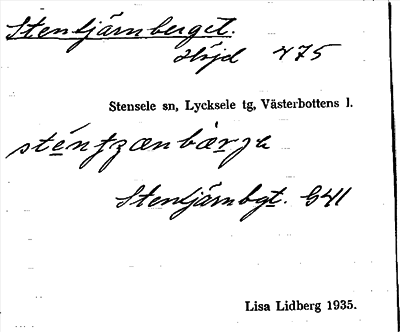 Stentjärnberget.
Höjd 475
Stensele sn, Lycksele tg, Västerbottens l.
Stentjärnbgt. G41
Lisa Lidberg 1935.